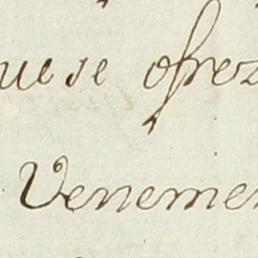 ue se ofrez
Venemen